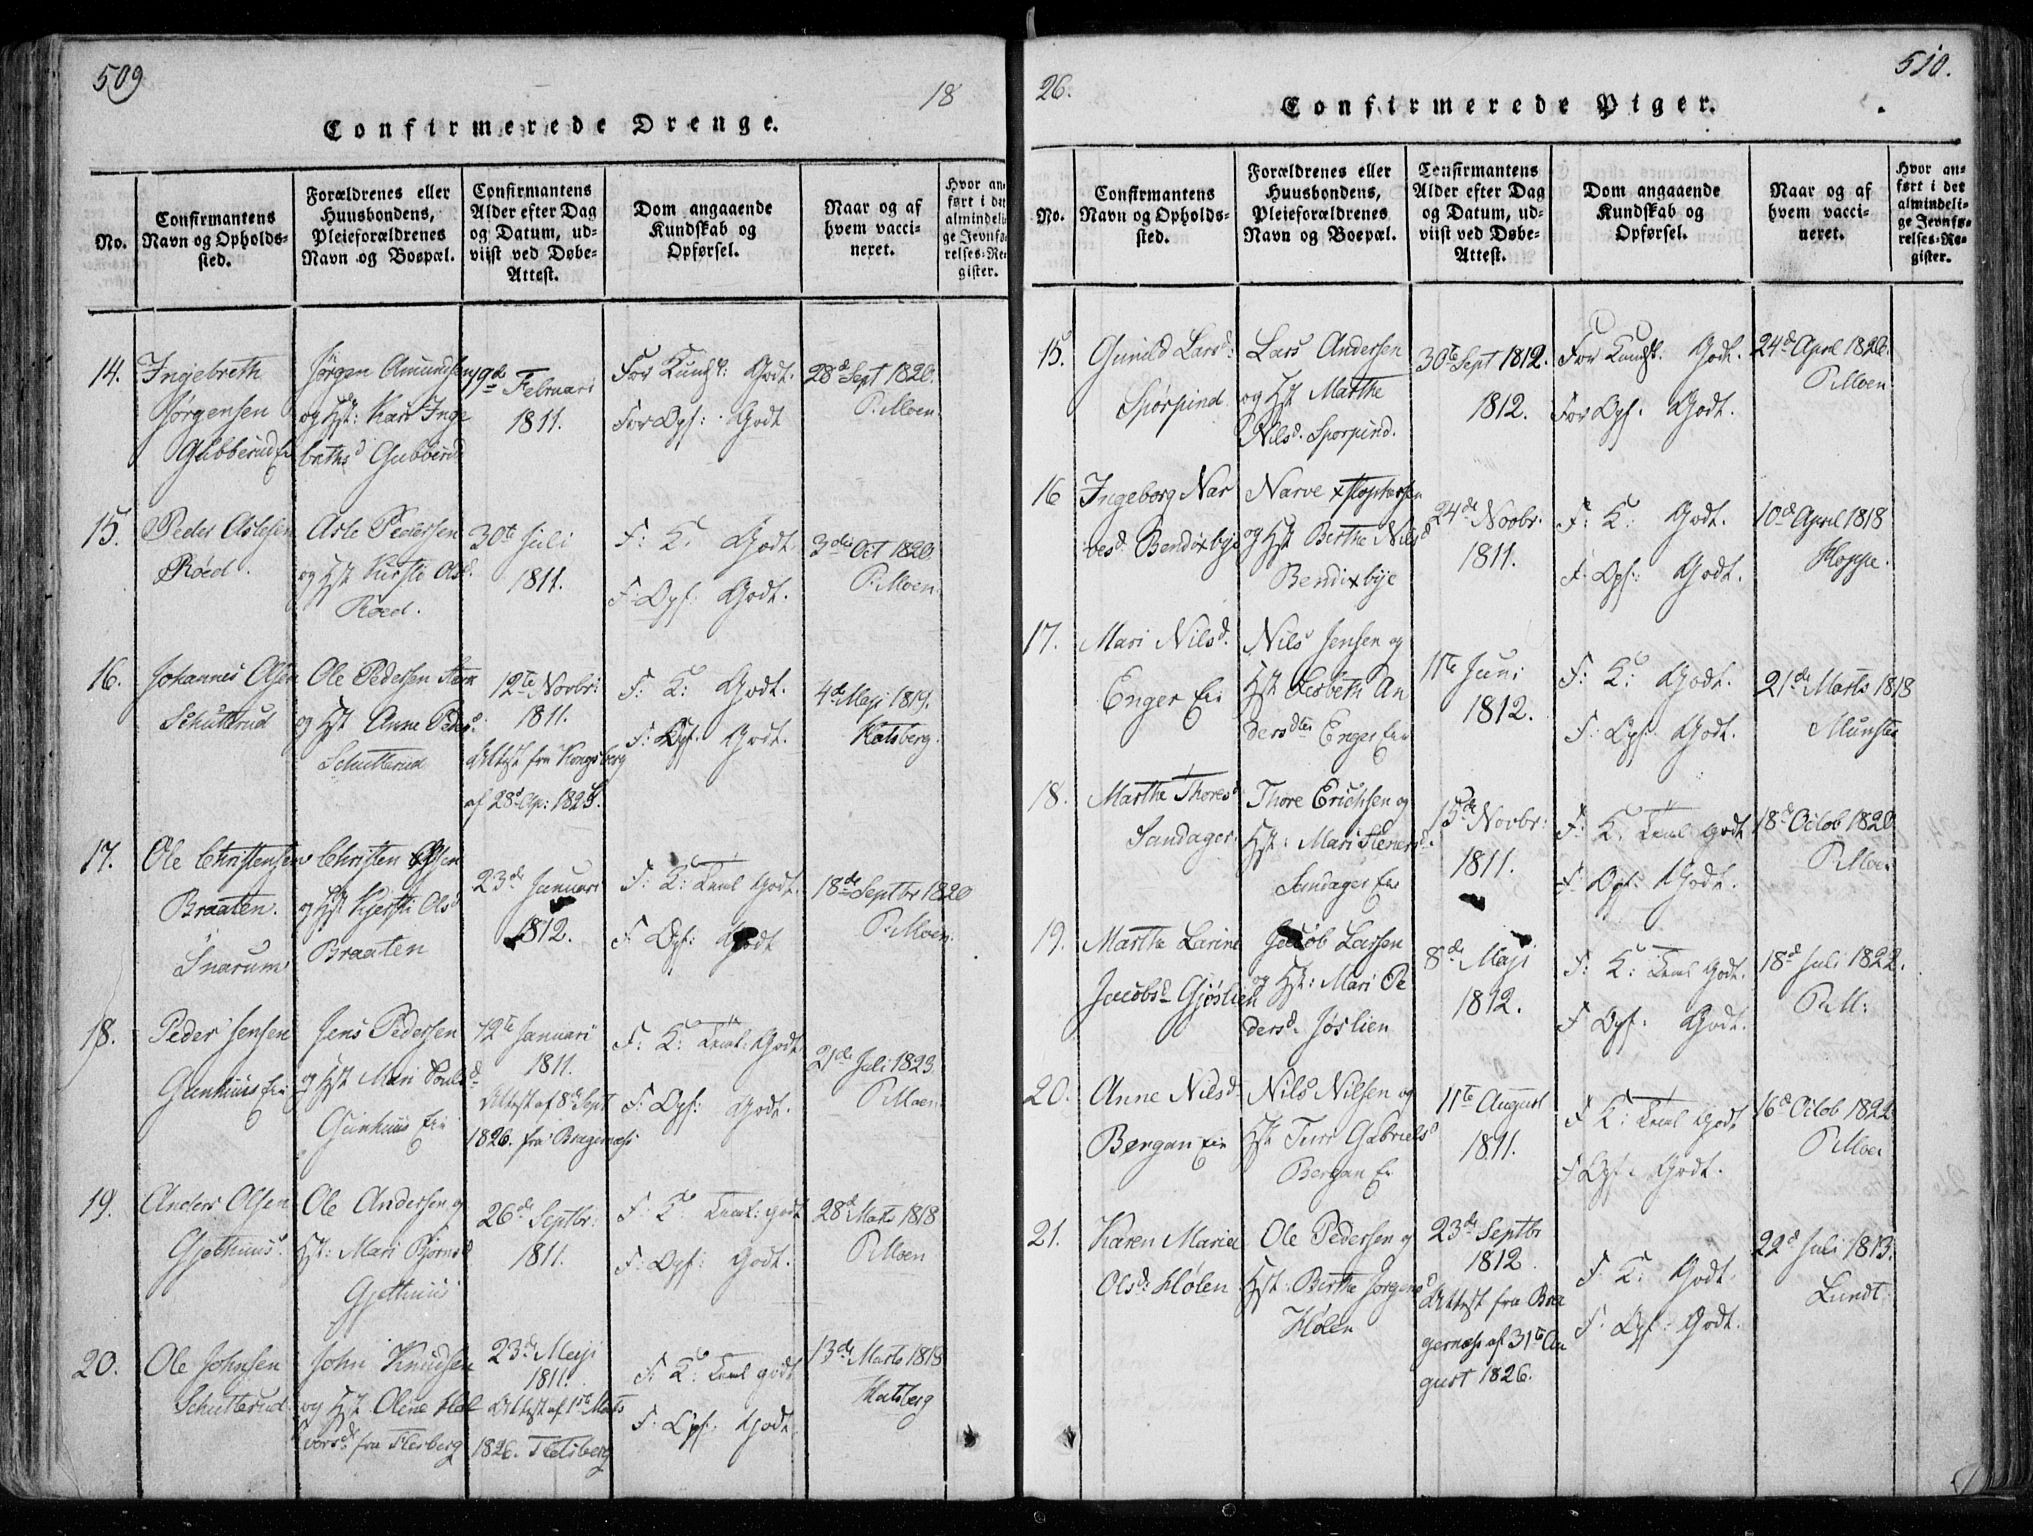 509
18
Confirmerede Drenge.
No.
Confirmantens Navn og Opholds-sted.
Forældrenes eller Huusbondens, Pleieforældrenes Navn og Boepæl.
Confirmantens Alder efter Dag og Datum, ud-viist ved Døbe-Attest.
Dom angaaende Kundskab og Opførsel.
Naar og af hvem vacci-neret.
Hvor an-ført i det almindeli-ge Jevnfø-relses-Re-gister.
14.
Ingebreth
Jørgensen
Gubberud Ei
Jørgen Amundsen
og Hst: Kari Inge
breths d Gubberud
19de Februari
1811.
For Kundsk: Godt.
For Opf: Godt
28d Sept 1820.
P. Moen.
15.
Peder Aslesen
Røed.
Asle Pedersen
og Hst Kirsti Olsd.
Røed.
30te Juli
1811.
F: K: Godt
F: Opf: Godt.
3die Oct 1820.
P. Moen.
16.
Johannes Olsen
Schutterud
Ole Pedersen
og Hst Anne Peders d.
Schutterud
12te Novbr:
1811.
Attest fra Kongsberg
af 28d Ap: 1825.
F: K: Godt.
F: Opf. Godt.
4de Maji 1819.
Hatsberg.
17.
Ole Christensen
Braaten.
Snarum
Christen Olsen
og Hst Kjersti Olsd
Braaten
23de Januari
1812.
F: K: Teml Godt.
F: Opf: Godt
18de Septbr 1820
P. Moen.
18.
Peder Jensen
Gunhuus Ei
Jens Pedersen
og Hst Mari Pouls d
Gunhuus Ei
12te Januari
1811.
Attest af 8d Sept
1826. fra Bragernæss
F: K: Teml: Godt
F: Opf: Godt.
21de Juli 1823.
P. Moen
19.
Anders Olsen
Gjethuus.
Ole Andersen og
Hst: Mari Bjørnsd
Gjethuus
26de Septbr:
1811.
F: K: Teml: godt
F: Opf: Godt.
28d Marts 1818
P. Moen
20.
Ole Johnsen
Schutterud
John Knudsen
og Hst Oline Hal
vorsd. fra Flesberg
23de Maji
1811.
Attest af 1ste Marts
1826. Flesberg
F: K: Teml godt
F: Opf. Godt.
13de Marts 1818
Hatsberg
26.
510.
Confirmerede Piger.
No.
Confirmantens Navn og Opholds-sted.
Forældrenes eller Huusbondens, Pleieforældrenes Navn og Boepæl.
Confirmantens Alder efter Dag og Datum, ud-viist ved Døbe-Attest.
Dom angaaende Kundskab og Opførsel.
Naar og af hvem vacci-neret.
Hvor an-ført i det almindeli-ge Jevnfø-relses-Re-gister.
15.
Gunild Larsd:
Spørpind.
Lars Andersen
og Hst Marthe
Nilsd. Spørpind.
30te Sept 1812.
1812.
For Kundsk. Godt.
For Opf. Godt.
24d April 1826.
P. Moen
16
Ingeborg Nar
vesd. Bendixbye
Narve
og Hst Berthe Nilsd
Bendixbye
24de Novbr.
1811.
F: K: Godt.
F: Opf: Godt.
10de April 1818
Hoppe.
17.
Mari Nilsd.
Enger Ei
Nils Jensen og
Hst Lisbeth An
dersdtr Enger Ei
11te Juni
1812.
F: K: Godt.
F: Opf. Godt.
21de Marts 1818
Munster
18.
Marthe Thoresd
Sandager.
Thore Erichsen og
Hst: Mari Steners d.
Sandager Ei
15de Novbr:
1811.
F: K: Teml Godt
F: Opf: Godt.
18d Octob 1820
P. Moen
19.
Marthe Larine
Jacobsd Gjøslien
Jacob Larsen
og Hst: Mari Pe
dersd. Jøslien
8de Maji
1812.
F: K: Teml Godt.
F Opf: Godt.
18d Juli 1822.
P. M:
20.
Anne Nilsd.
Bergan Ei
Nils Nilsen og
Hst Turi Gabrielsd
Bergan Ei
11te August
1811.
F K: Teml Godt
F Opf: Godt.
16d Octob 1822
P. Moen
21.
Karen Maria
Olsd. Hølen
Ole Pedersen og
Hst. Berthe Jørgensd
Hølen
23de Septbr
1812
Attest fra Bra
gernæss af 31te Au
gust 1826.
F: K: Godt.
F: Opf: Godt.
22d Juli 1813.
Lundt